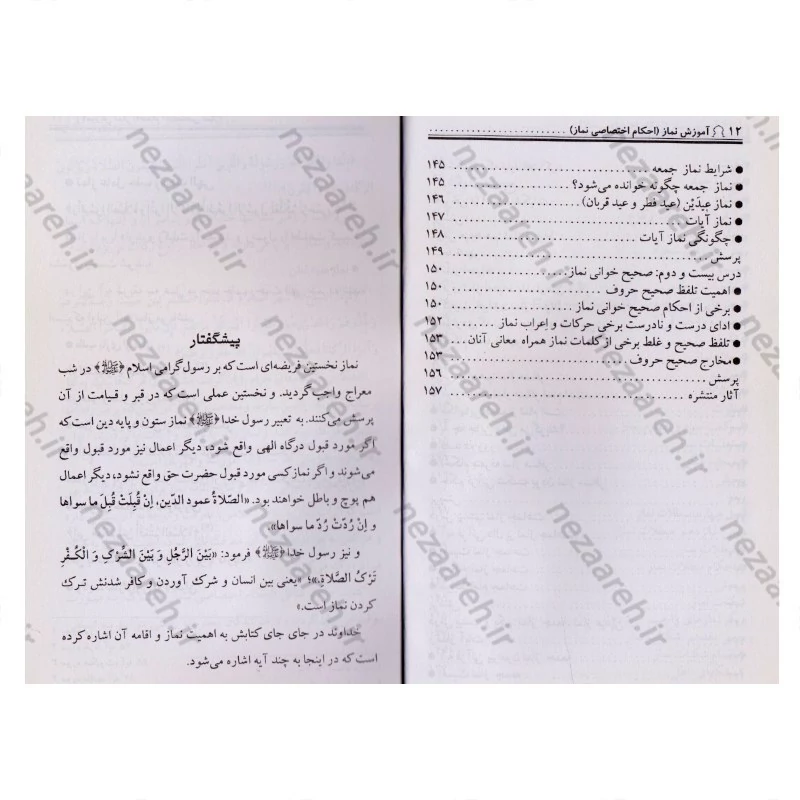 ۱۲ آموزش نماز (احکام اختصاصی نماز) ..........................
● شرایط نماز جمعه ................................ ۱۴۵
● نماز جمعه چگونه خوانده می‌شود؟ ................ ۱۴۵
● نماز عِیدَیْن (عید فطر و عید قربان) ................ ۱۴۶
● نماز آیات ................................ ۱۴۷
● چگونگی نماز آیات ................................ ۱۴۸
پرسش ................................ ۱۴۹
درس بیست و دوم: صحیح خوانی نماز ................ ۱۵۰
● اهمیت تلفظ صحیح حروف ................ ۱۵۰
● برخی از احکام صحیح خوانی نماز ................ ۱۵۰
● ادای درست و نادرست برخی حرکات و اِعراب نماز ........ ۱۵۲
● تلفظ صحیح و غلط برخی از کلمات نماز همراه معانی آنان ... ۱۵۳
● مخارج صحیح حروف ................ ۱۵۳
پرسش ................................ ۱۵۶
آثار منتشره ................................ ۱۵۷
پیشگفتار
نماز نخستین فریضه‌ای است که بر رسول گرامی اسلام ﴿ﷺ﴾ در شب
معراج واجب گردید. و نخستین عملی است که در قبر و قیامت از آن
پرسش می‌کنند. به تعبیر رسول خدا ﴿ﷺ﴾ نماز ستون و پایه دین است که
اگر مورد قبول درگاه الهی واقع شود، دیگر اعمال نیز مورد قبول واقع
می‌شوند و اگر نماز کسی مورد قبول حضرت حق واقع نشود، دیگر اعمال
هم پوچ و باطل خواهند بود. «الصّلاةُ عمود الدّین، اِنْ قُبِلَتْ قُبِلَ ما سواها
و اِنْ رُدَّتْ رُدَّ ما سواها».
و نیز رسول خدا ﴿ﷺ﴾ فرمود: «بَیْنَ الرَّجُلِ وَ بَیْنَ الشِّرْکِ وَ الْکُفْرِ
تَرْکَ الصَّلاةِ.»؛ «یعنی بین انسان و شرک آوردن و کافر شدنش ترک
کردن نماز است.»
خداوند در جای جای کتابش به اهمیت نماز و اقامه آن اشاره کرده
است که در اینجا به چند آیه اشاره می‌شود.
nezaareh.ir
nezaareh.ir
nezaareh.ir
nezaareh.ir
nezaareh.ir
nezaareh.ir
nezaareh.ir
nezaareh.ir
nezaareh.ir